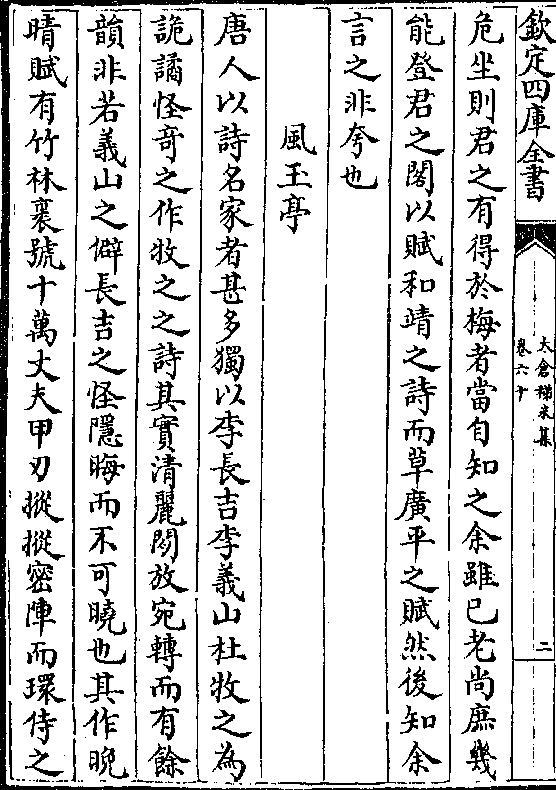 欽定四庫全書
太倉稊米集
卷六十
二
危坐則君之有得於梅者當自知之余雖已老尚庶幾
能登君之閣以賦和靖之詩而草廣平之賦然後知余
言之非夸也
風玉亭
唐人以詩名家者甚多獨以李長吉李義山杜牧之為
詭譎怪奇之作牧之之詩其實清麗閎放宛轉而有餘
韻非若義山之僻長吉之怪隱晦而不可曉也其作晚
晴賦有竹林裏號十萬丈夫甲刃摐摐密陣而環侍之